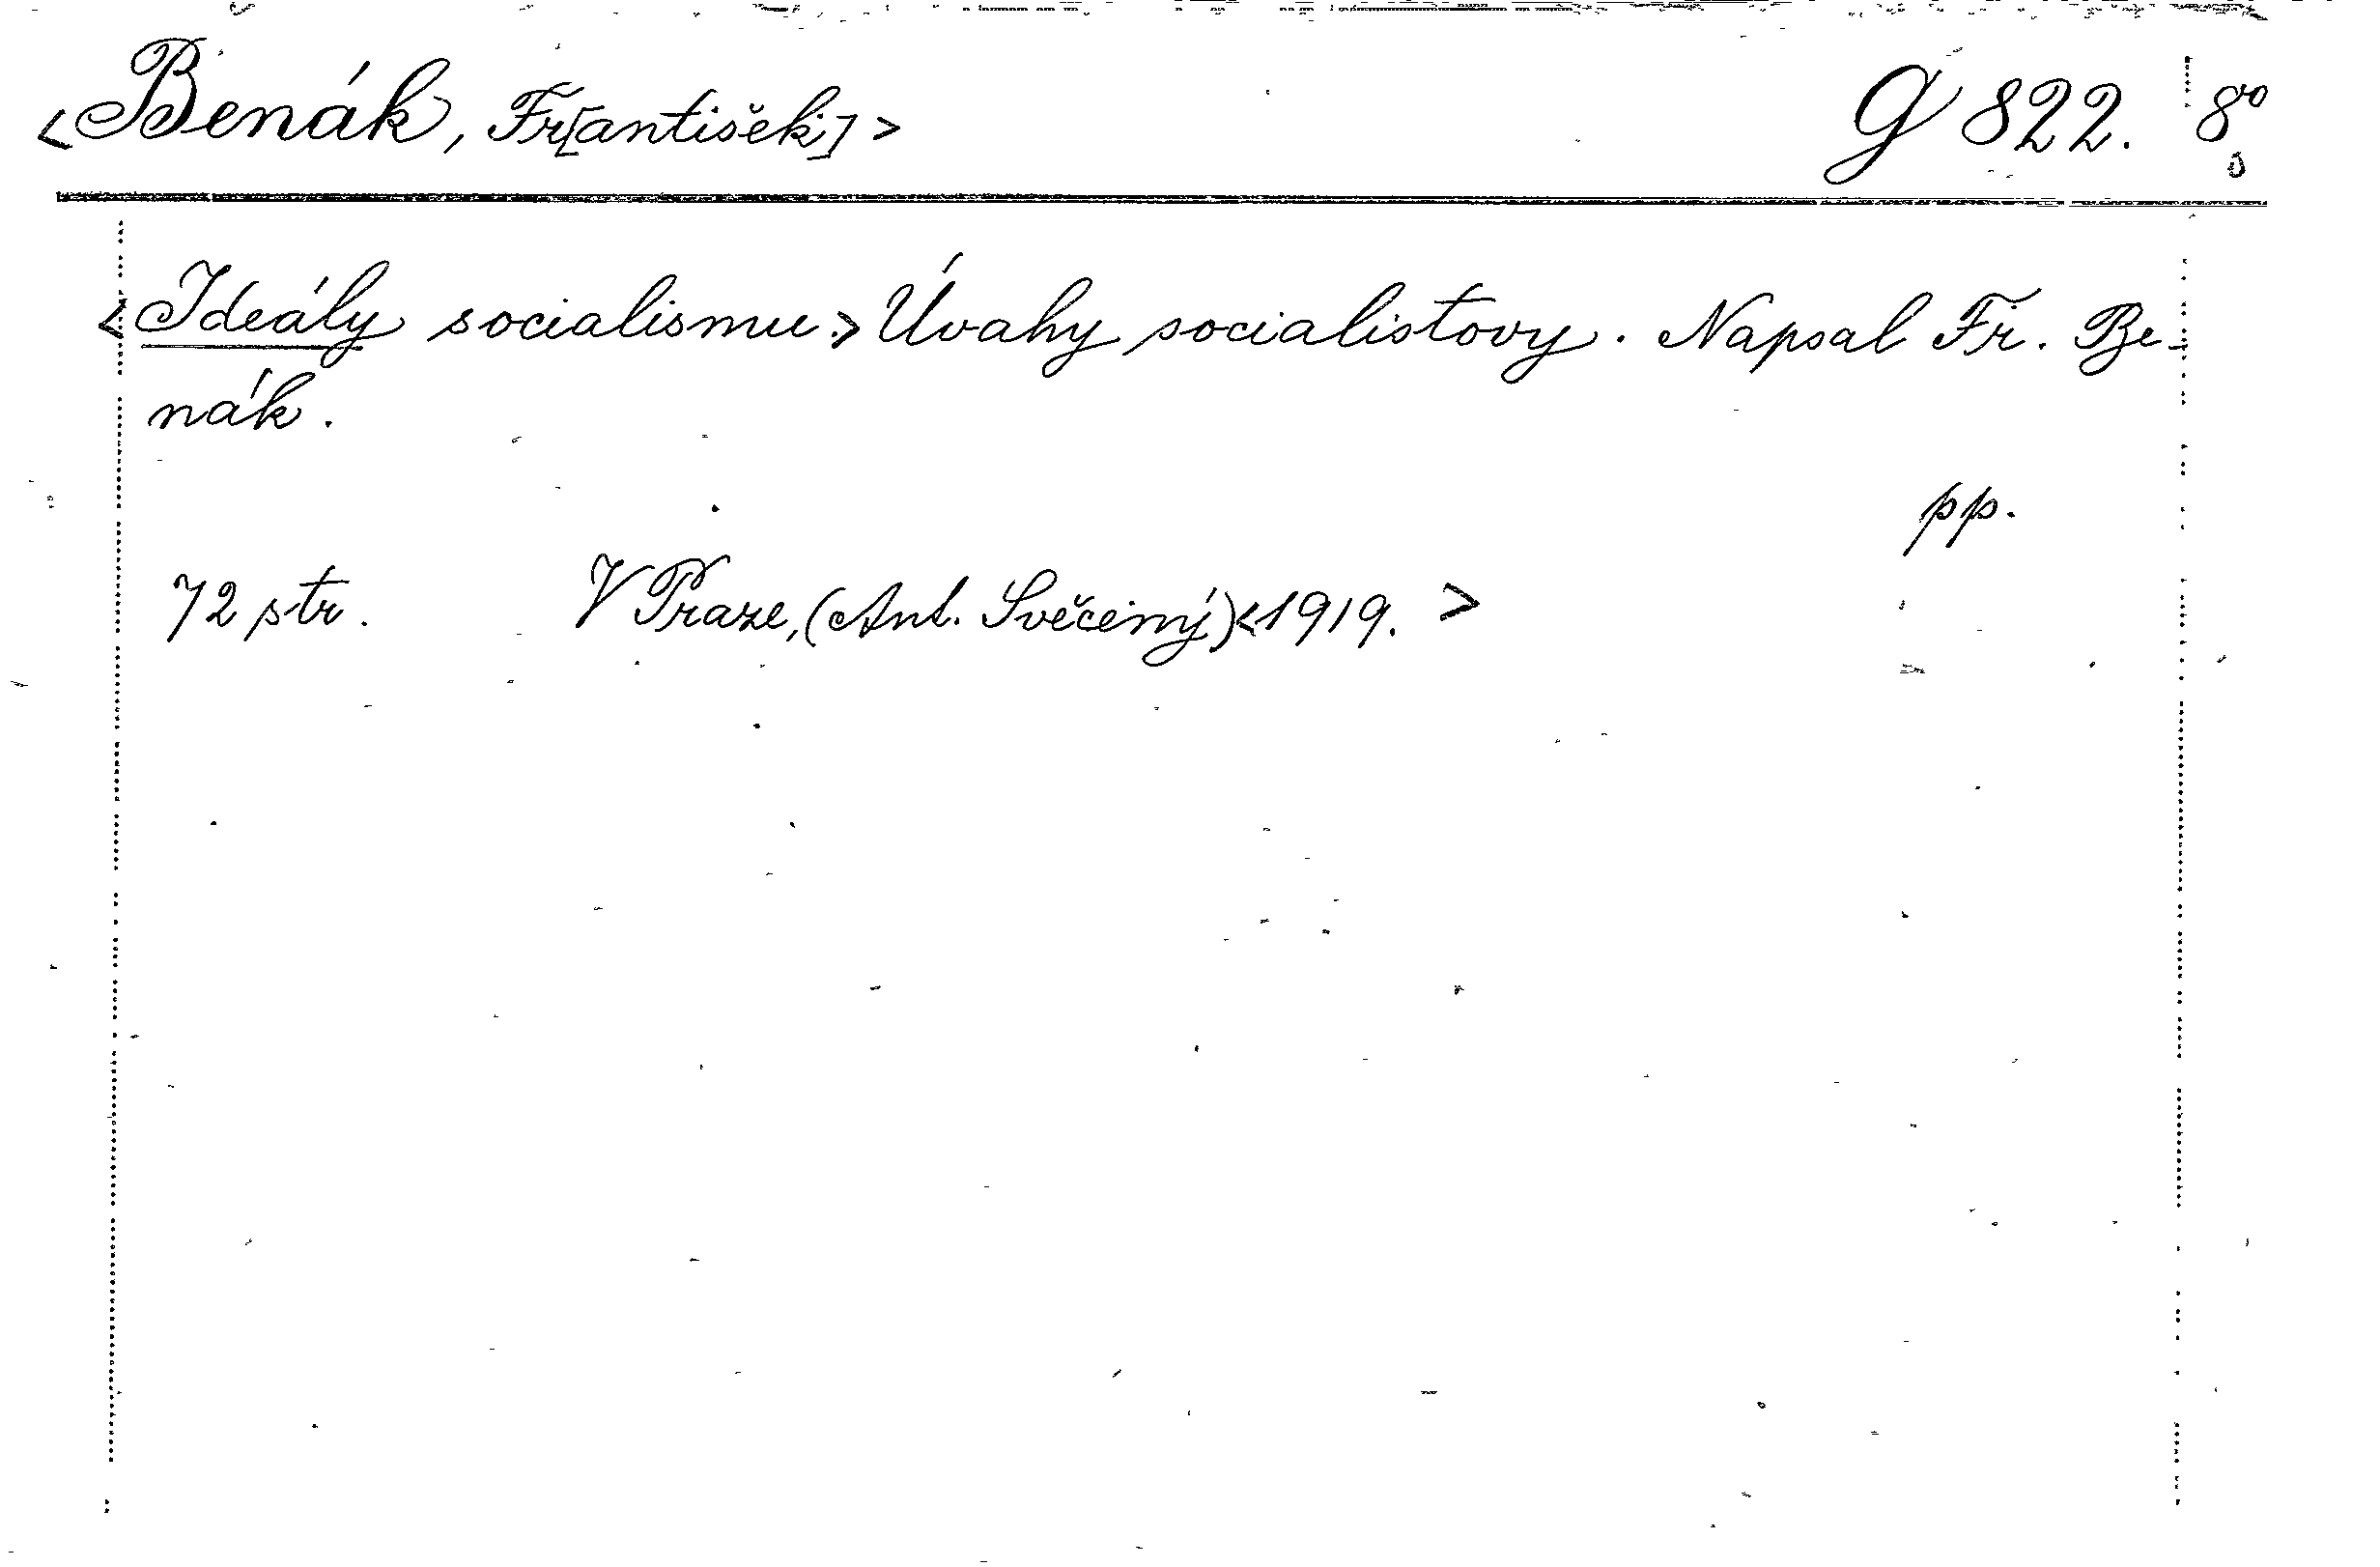 <Benák, Fr[antišek]> G 822. 8º
<Ideály socialismu.> Úvahy socialistovy. Napsal Fr. Be-
nák.
pp.
72 str. V Praze, (Ant. Svěcený) <1919. >